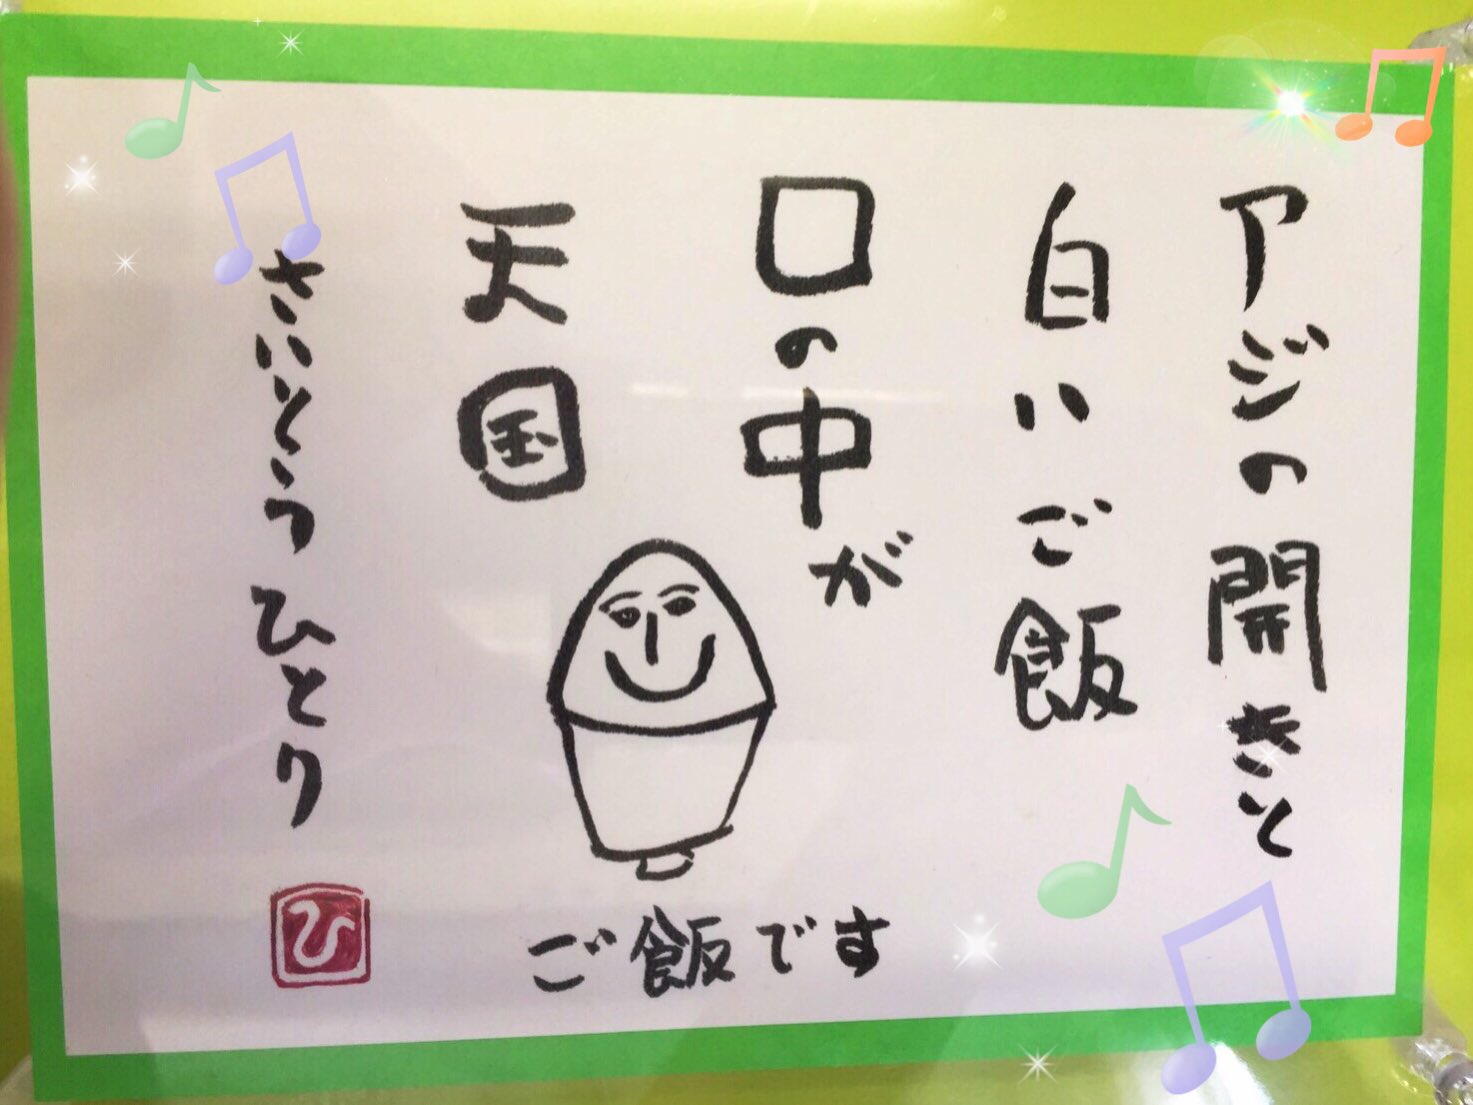 アジの開きと
白いご飯
口の中が
天国
さいとうひとり
ひ
ご飯です